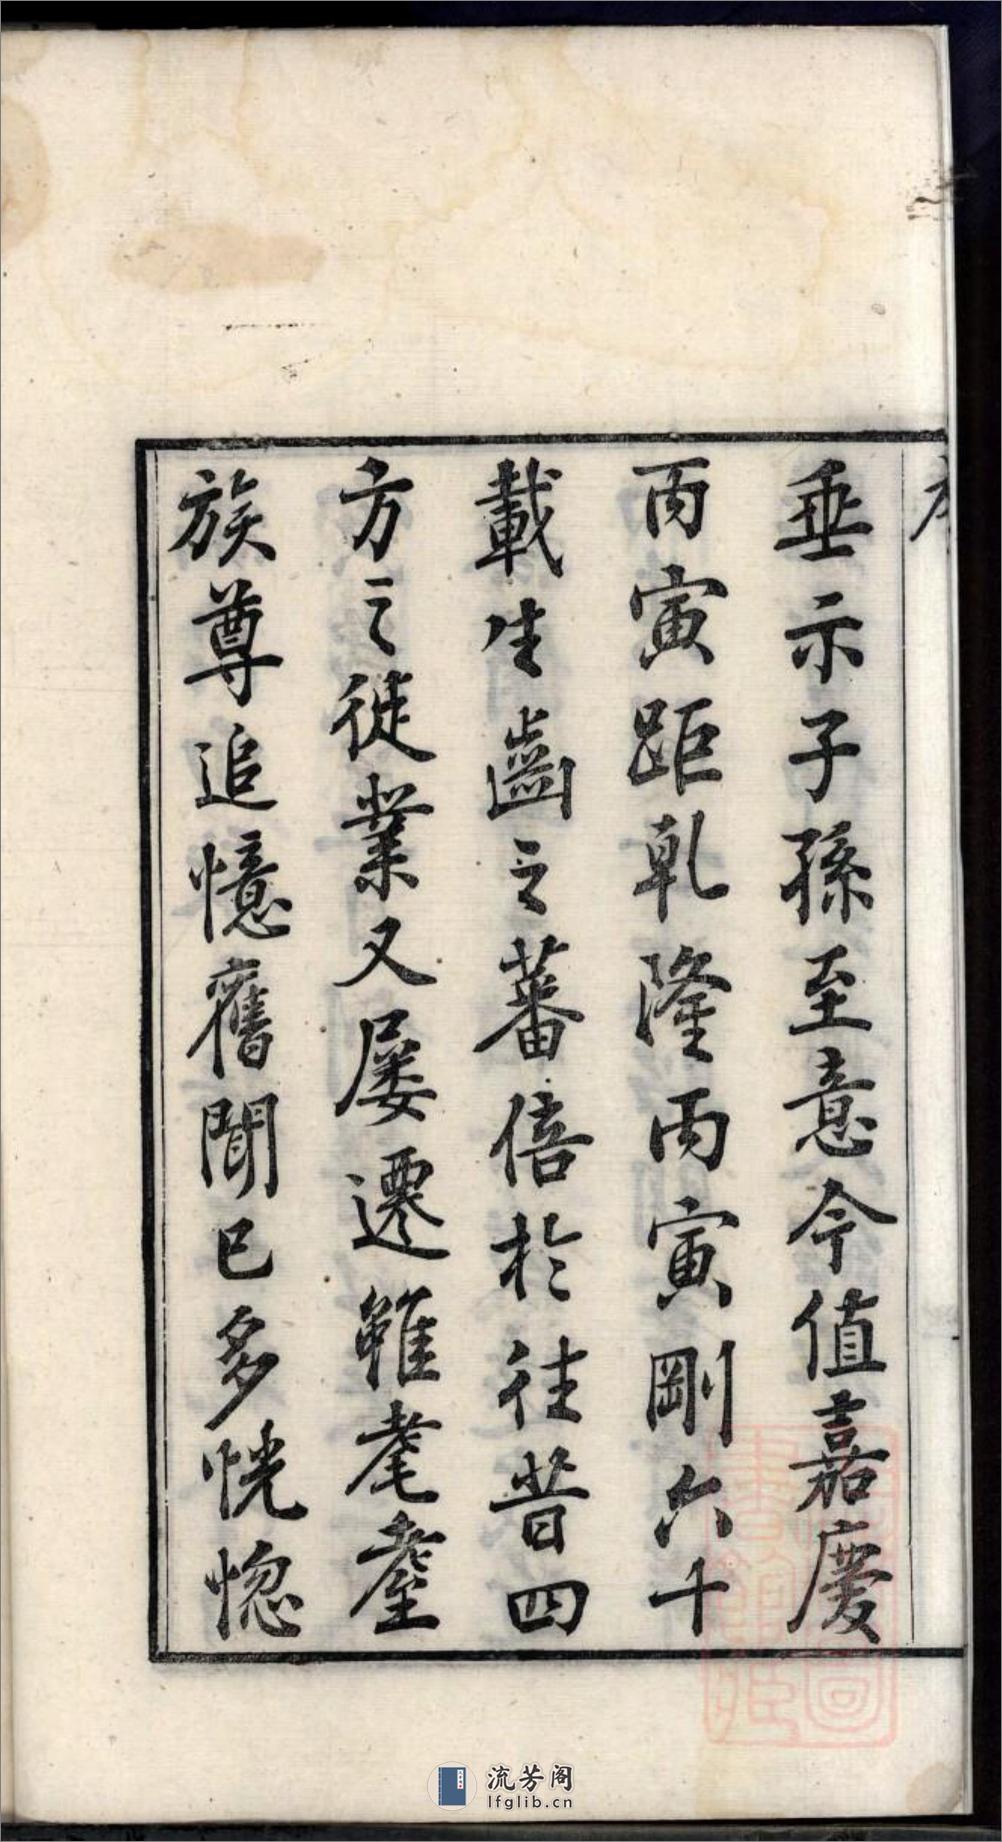 垂示子孫至意今值嘉慶
丙寅距乾隆丙寅剛六十
載生齒之蕃倍於往昔四
方之徙業又屡遷雖耄耋
族尊追憶舊聞已多恍惚
流芳阁
lfglib.cn